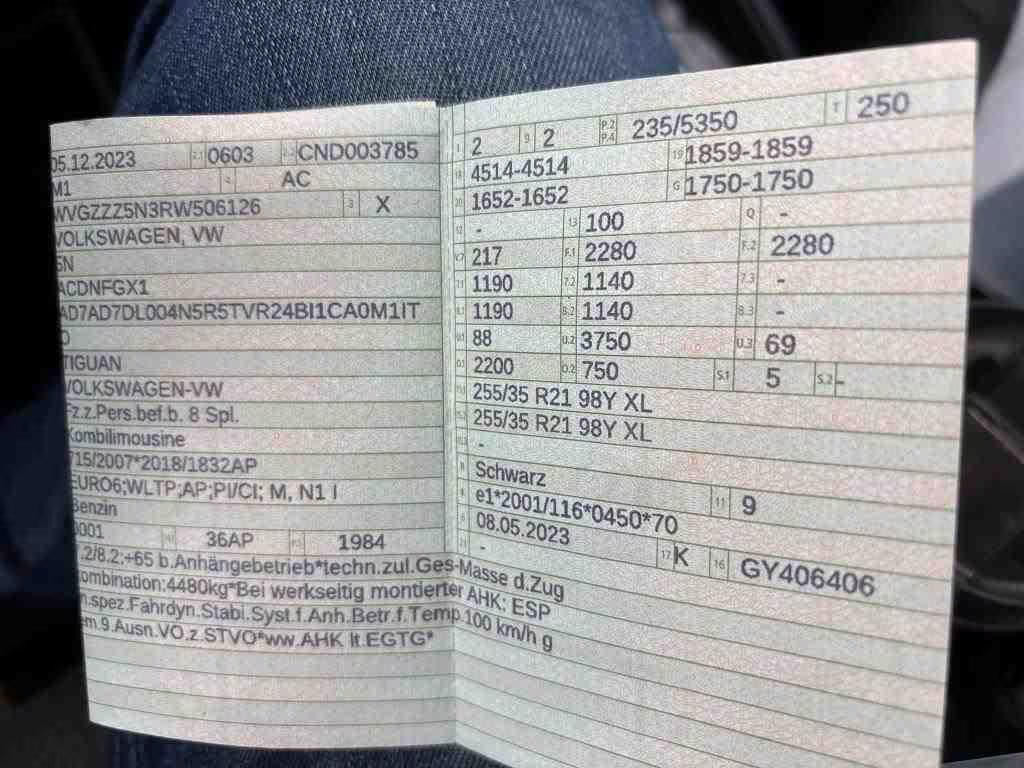 05.12.2023 2.1 0603 2.2 CND003785
M1 4 AC
WVGZZZ5N3RW506126 3 X
VOLKSWAGEN, VW
5N
ACDNFGX1
AD7AD7DL004N5R5TVR24BI1CA0M1IT
TIGUAN
VOLKSWAGEN-VW
Fz.z.Pers.bef.b. 8 Spl.
Kombilimousine
715/2007*2018/1832AP
EURO6;WLTP;AP;PI/CI; M, N1 I
Benzin
0001 36AP 1984
.2/8.2:+65 b.Anhängebetrieb*techn.zul.Ges-Masse d.Zug
ombination:4480kg*Bei werkseitig montierter AHK: ESP
.spez.Fahrdyn.Stabi.Syst.f.Anh.Betr.f.Temp.100 km/h g
em.9.Ausn.VO.z.STVO*ww.AHK lt.EGTG*
2 9 2 P.2 P.4 235/5350 T 250
18 4514-4514 19 1859-1859
20 1652-1652 G 1750-1750
12 - 13 100 Q -
217 F.1 2280 F.2 2280
1190 7.2 1140 7.3 -
1190 8.2 1140 8.3 -
88 U.2 3750 U.3 69
2200 O.2 750 S.1 5 S.2 -
255/35 R21 98Y XL
255/35 R21 98Y XL
-
R Schwarz 11 9
e1*2001/116*0450*70
08.05.2023 17 K 16 GY406406
-